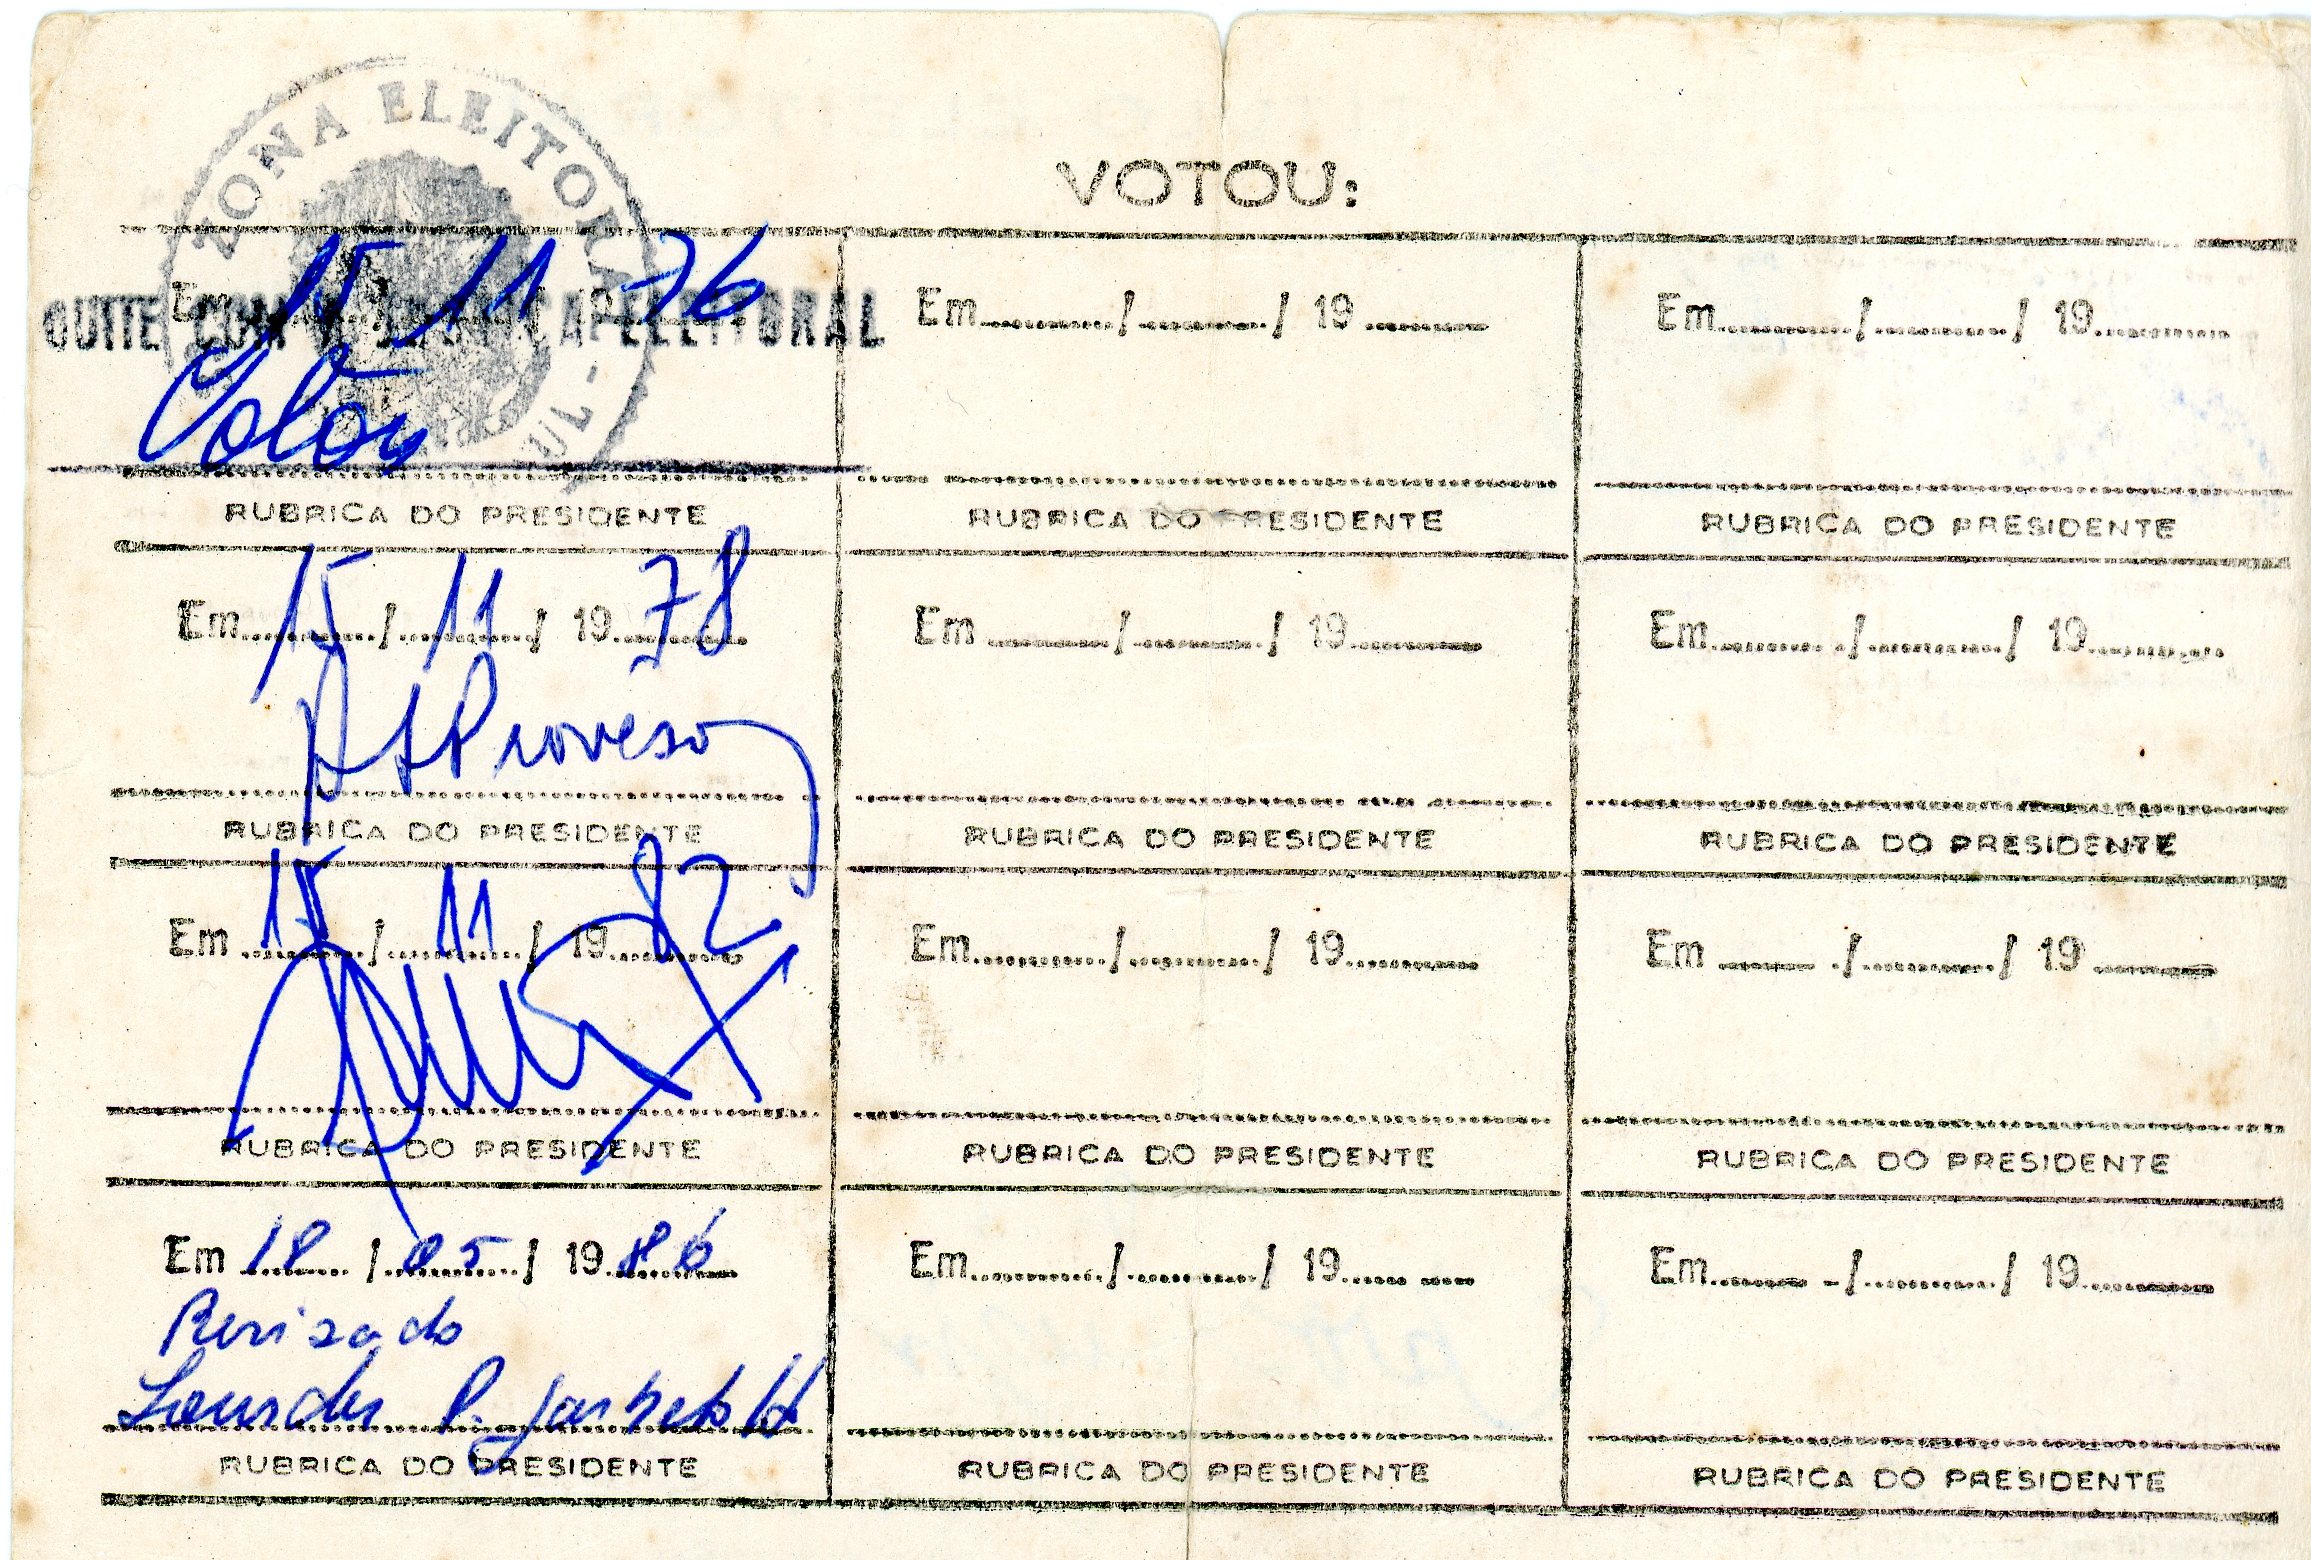 ZONA ELEITORAL
VOTOU:
Em 15 11 76
QUITE COM A JUSTIÇA ELEITORAL
Em ........./........./ 19 .........
Em ........./........./ 19 .........
RUBRICA DO PRESIDENTE
RUBRICA DO PRESIDENTE
RUBRICA DO PRESIDENTE
Em 15 / 11 / 19 78
Em ........./........./ 19 .........
Em ........./........./ 19 .........
RUBRICA DO PRESIDENTE
RUBRICA DO PRESIDENTE
RUBRICA DO PRESIDENTE
Em 15 / 11 / 19 82
Em ........./........./ 19 .........
Em ........./........./ 19 .........
RUBRICA DO PRESIDENTE
RUBRICA DO PRESIDENTE
RUBRICA DO PRESIDENTE
Em 18 / 05 / 19 86
Em ........./........./ 19 .........
Em ........./........./ 19 .........
Revisado
Lourdes P.
RUBRICA DO PRESIDENTE
RUBRICA DO PRESIDENTE
RUBRICA DO PRESIDENTE